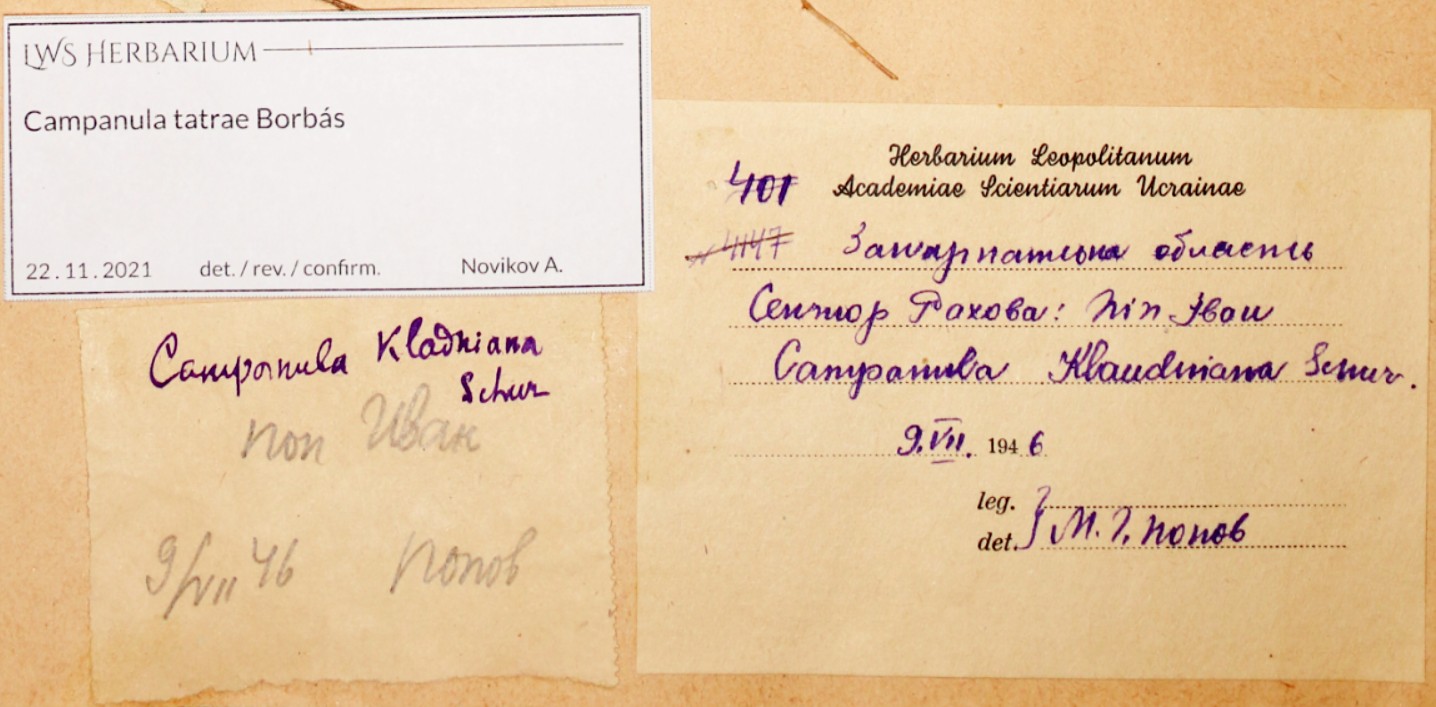 LWS HERBARIUM
Campanula tatrae Borbás
22.11.2021 det. / rev. / confirm. Novikov A.
Campanula Kladniana
Schur
поп Иван
9/VII 46 Попов
Herbarium Leopolitanum
401 Academiae Scientiarum Ucrainae
4147 Закарпатська область
Сектор Рахова: Піп Іван
Campanula Klaudniana Schur.
9.VII. 1946
leg.
det. М. Г. Попов